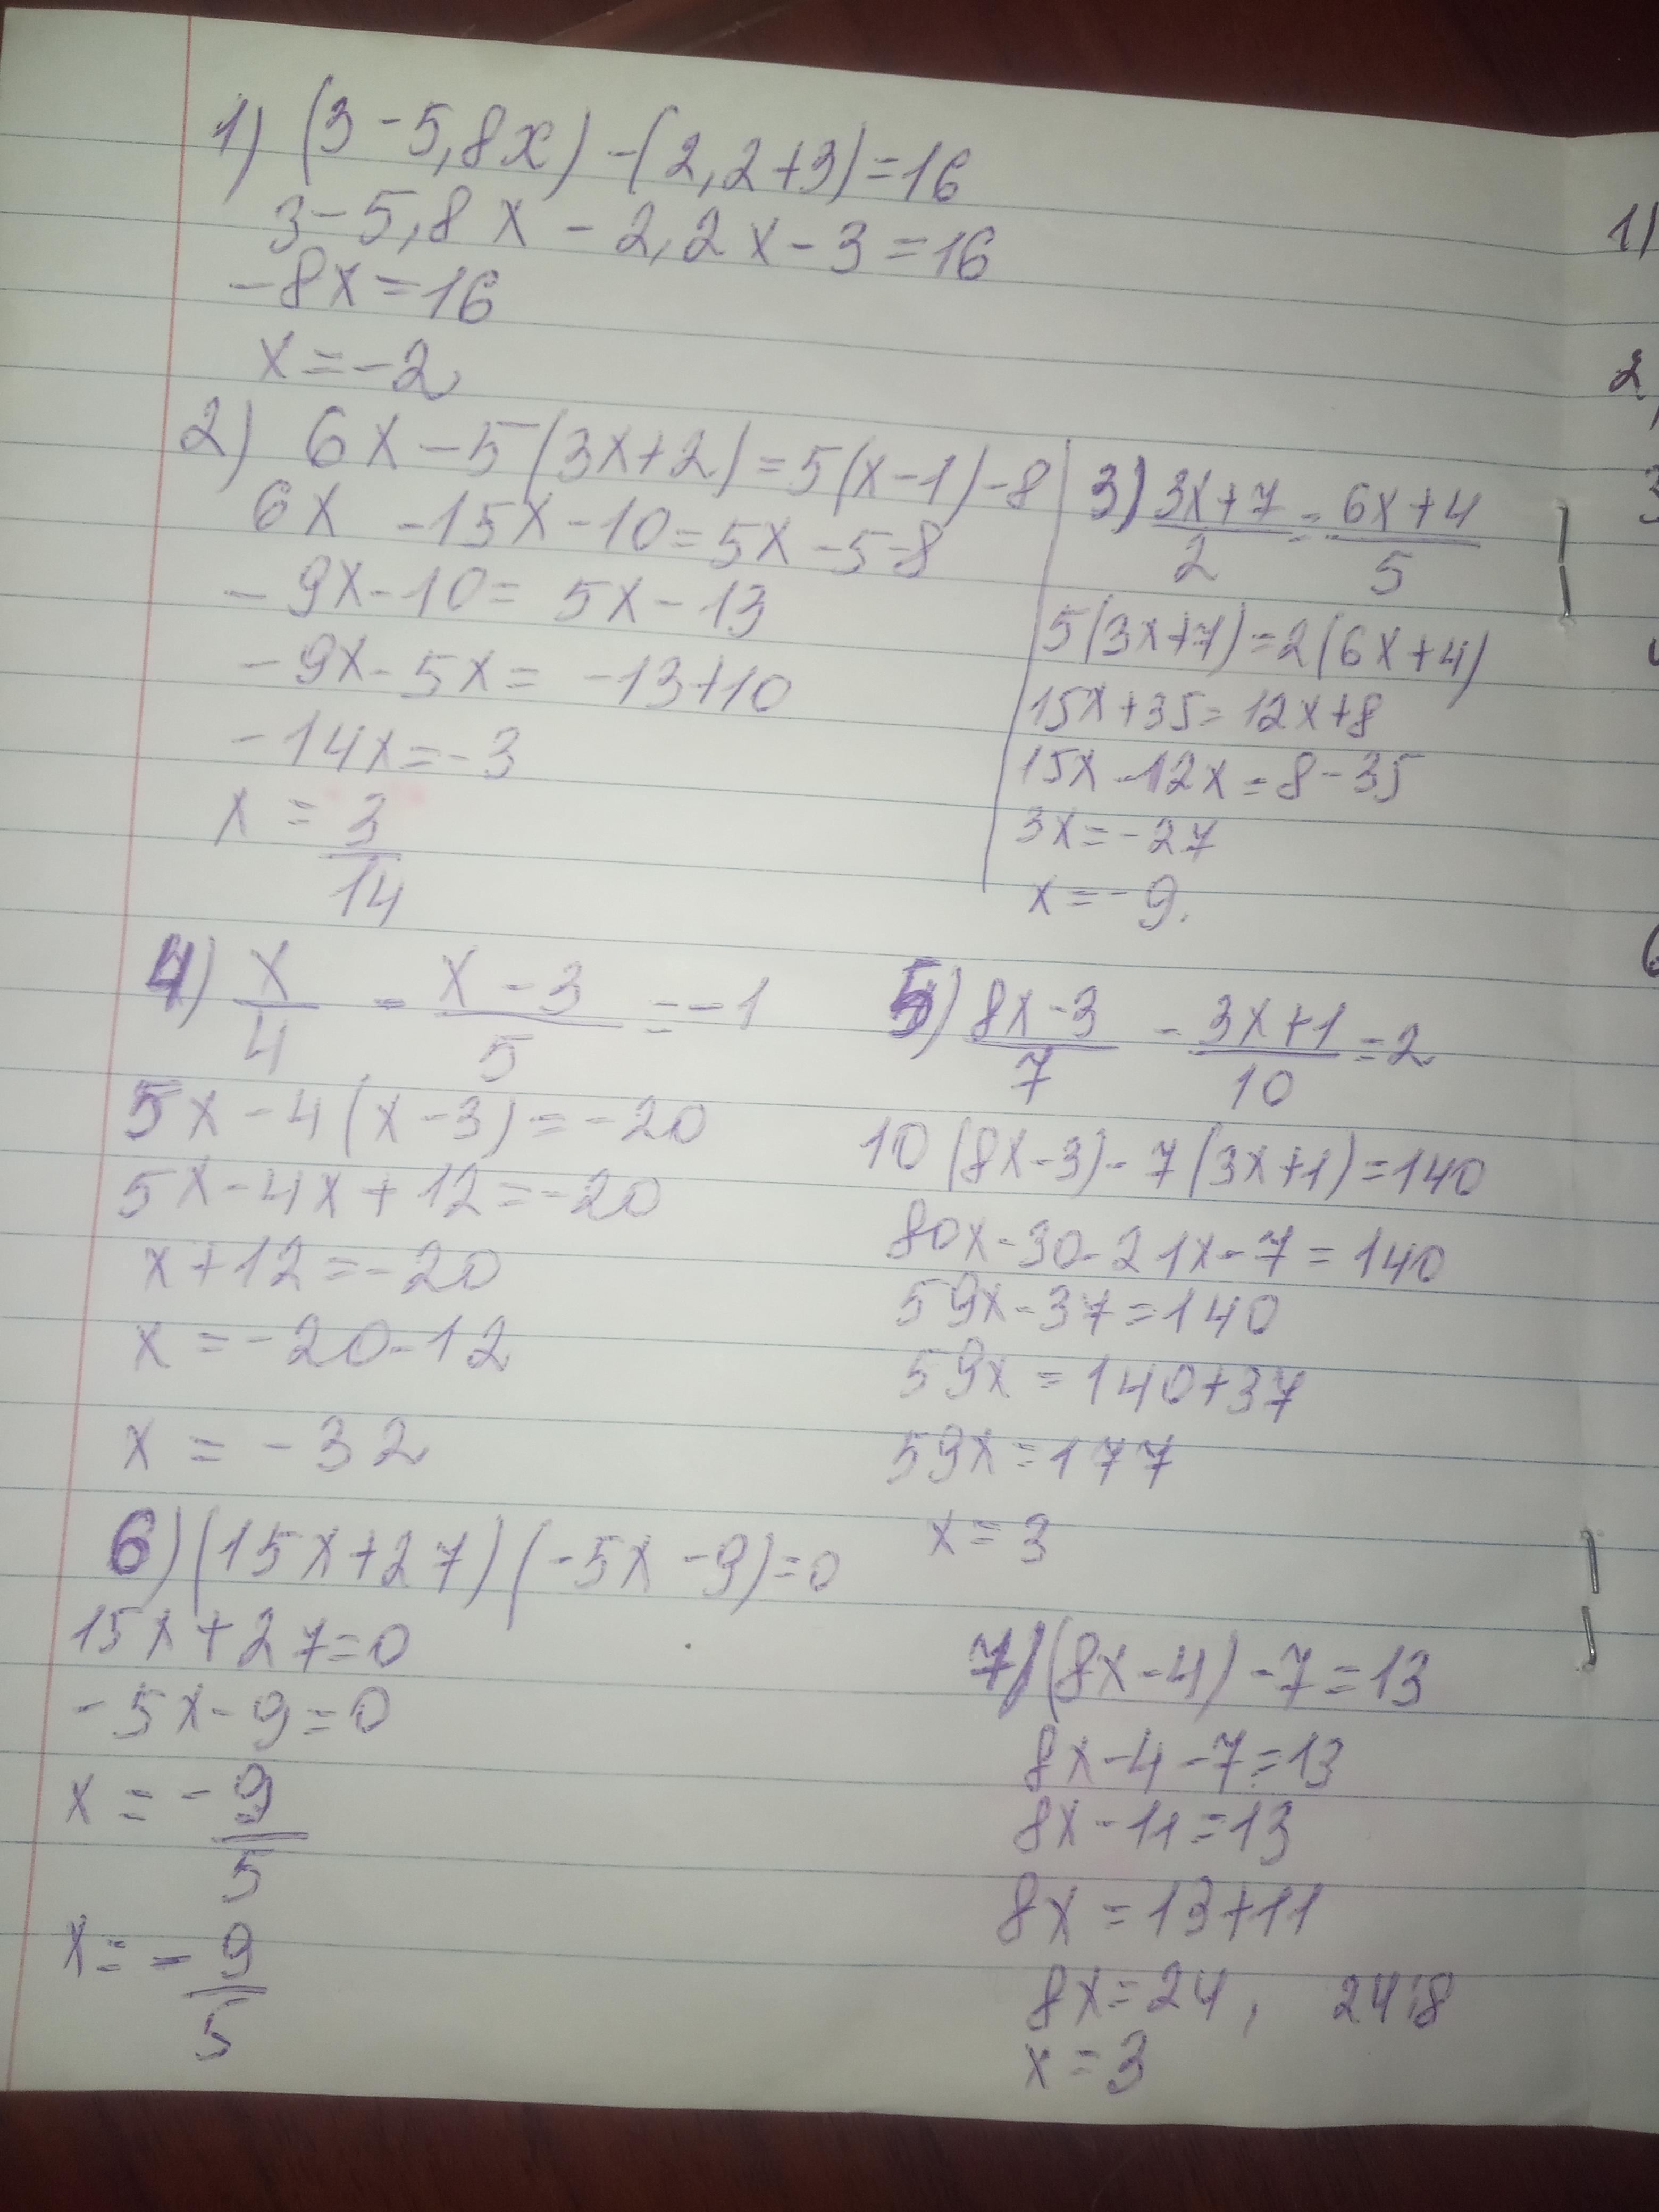 1) (3-5,8x)-(2,2+3)=16
3-5,8x-2,2x-3=16
-8x=16
x=-2
2) 6x-5(3x+2)=5(x-1)-8
6x-15x-10=5x-5-8
-9x-10=5x-13
-9x-5x=-13+10
-14x=-3
x=3/14
3) 3x+7/2=6x+4/5
5(3x+7)=2(6x+4)
15x+35=12x+8
15x-12x=8-35
3x=-27
x=-9.
4) x/4-x-3/5=-1
5x-4(x-3)=-20
5x-4x+12=-20
x+12=-20
x=-20-12
x=-32
5) 8x-3/7-3x+1/10=2
10(8x-3)-7(3x+1)=140
80x-30-21x-7=140
59x-37=140
59x=140+37
59x=177
x=3
6) (15x+27)(-5x-9)=0
15x+27=0
-5x-9=0
x=-9/5
x=-9/5
7) (8x-4)-7=13
8x-4-7=13
8x-11=13
8x=13+11
8x=24, 24:8
x=3
1)
2
3